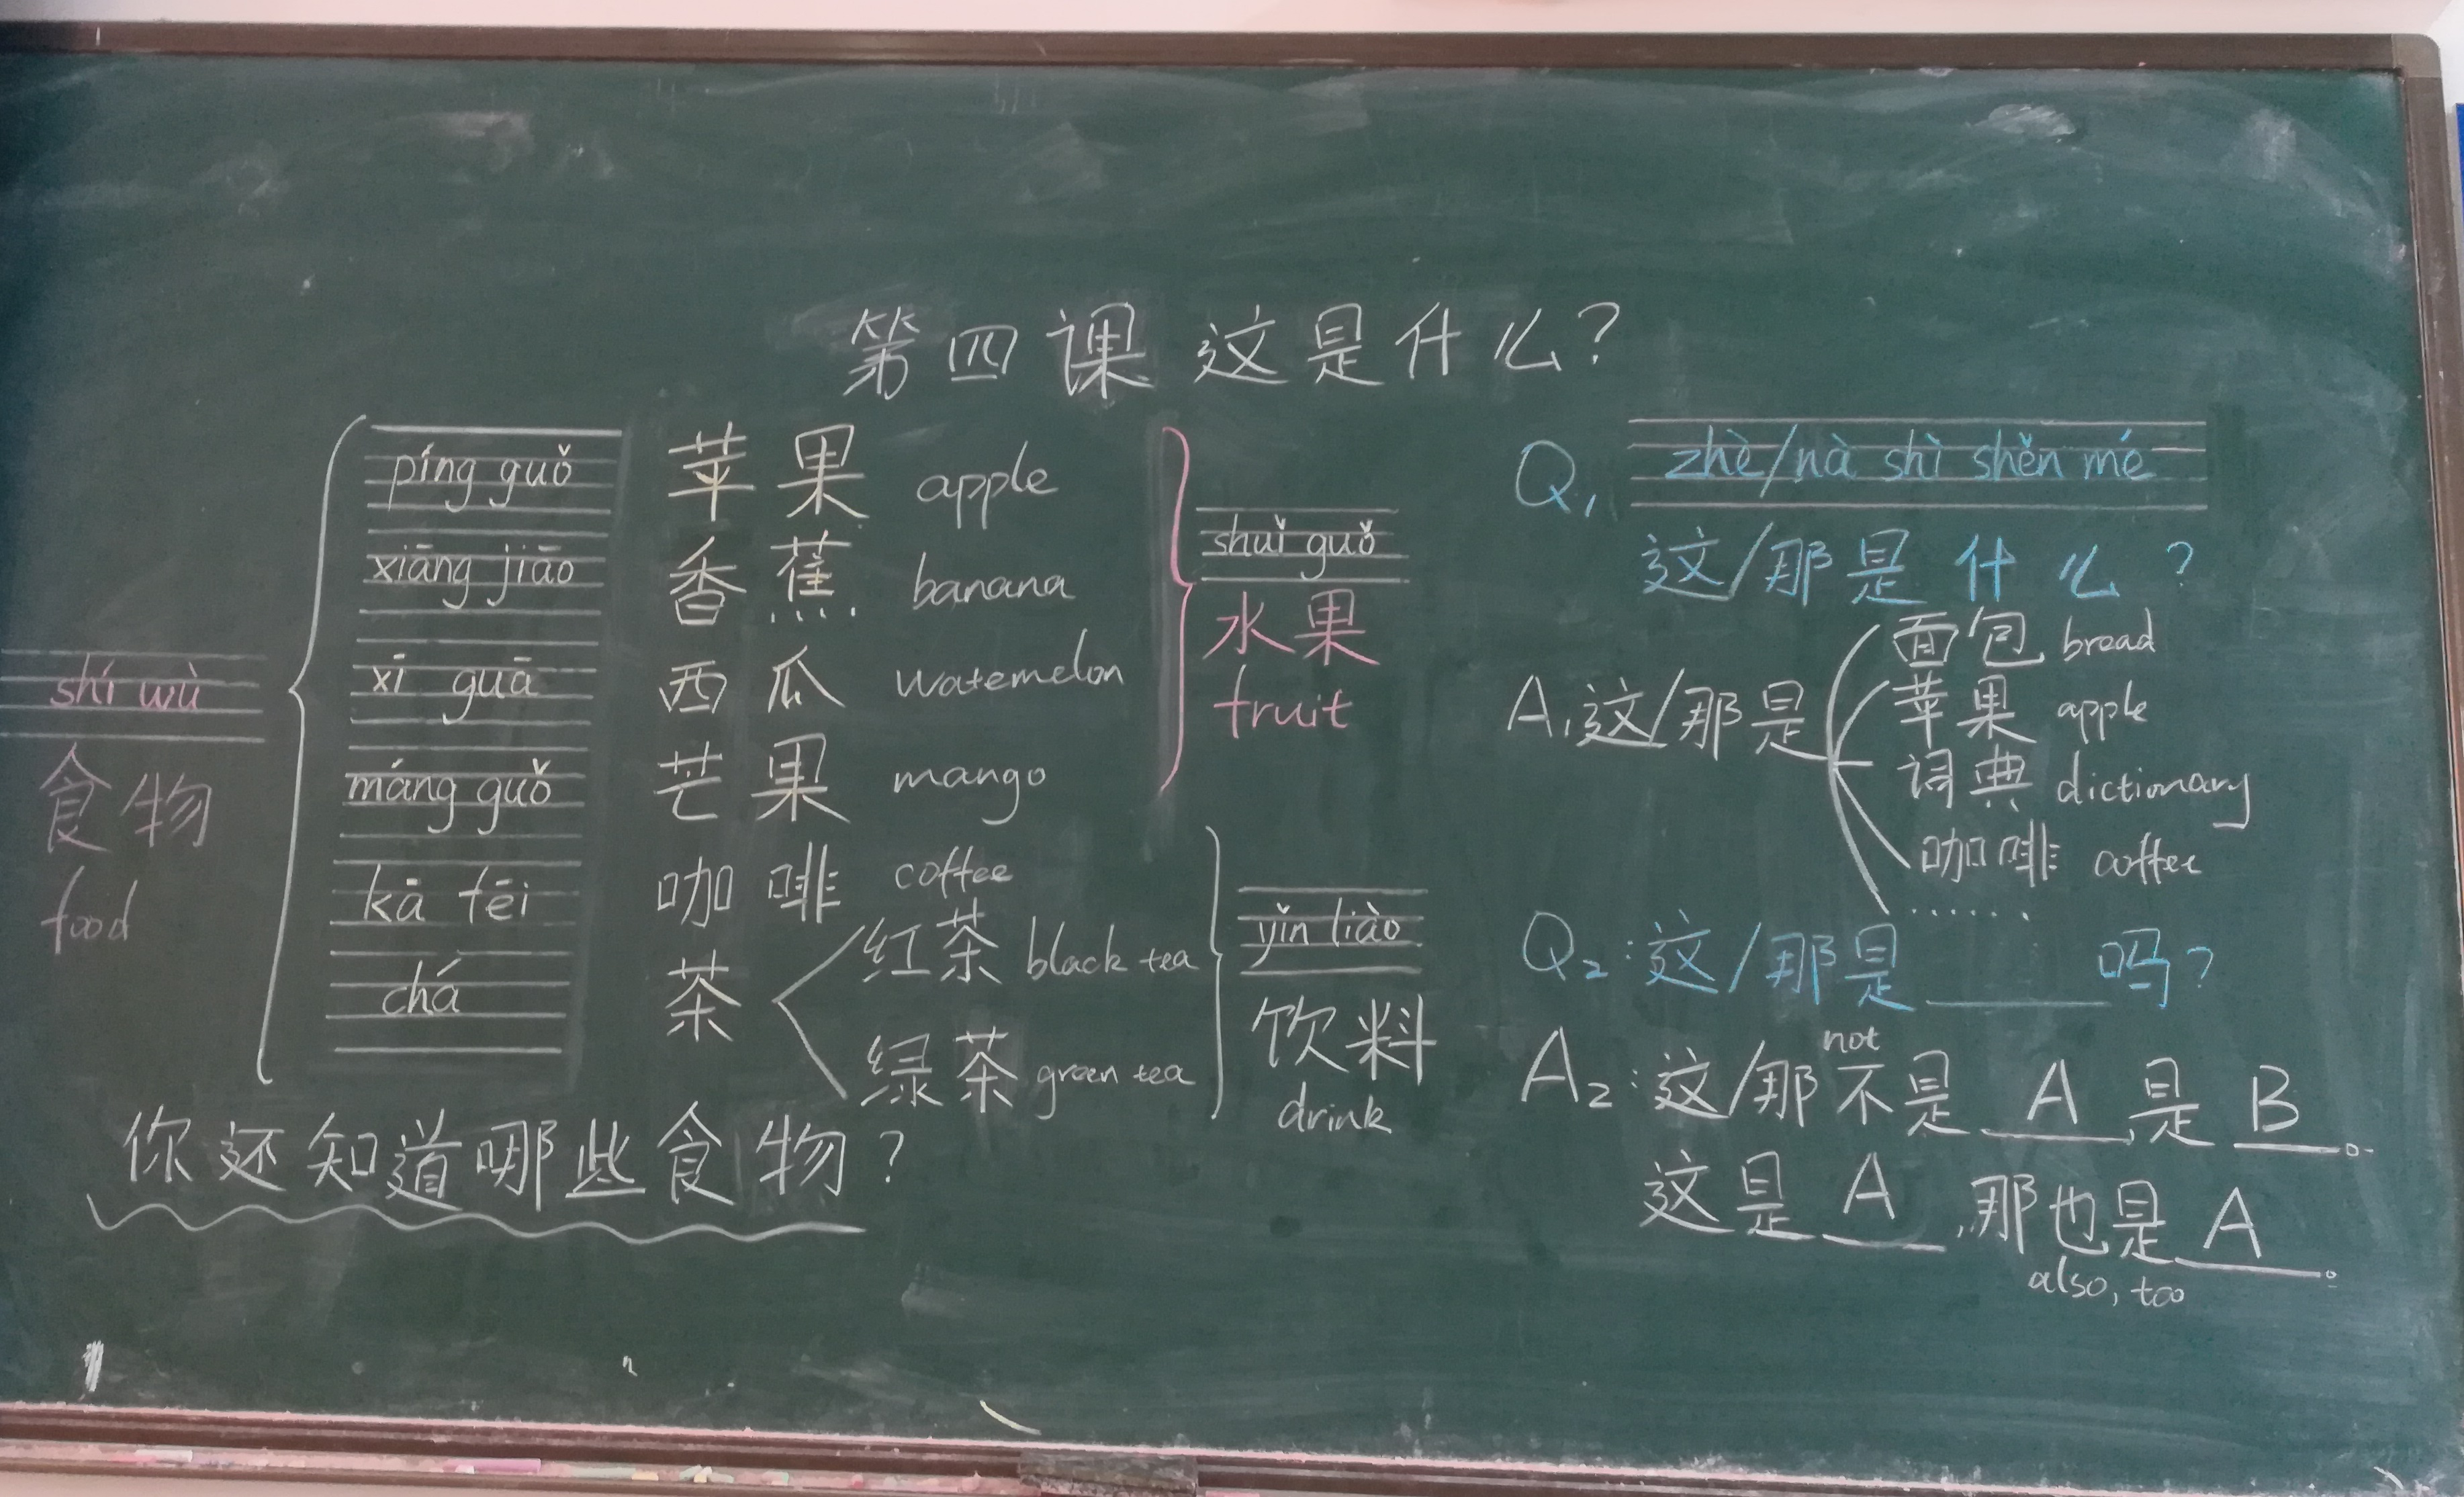 第四课 这是什么?
shí wù
食物
food
píng guǒ 苹果 apple
xiāng jiāo 香蕉 banana
xī guā 西瓜 watemelon
máng guǒ 芒果 mango
shuǐ guǒ
水果
fruit
kā fēi 咖啡 coffee
chá 茶
红茶 black tea
绿茶 green tea
yǐn liào
饮料
drink
你还知道哪些食物?
Q1 zhè/nà shì shěn mé
这/那是什么?
A1 这/那是
面包 bread
苹果 apple
词典 dictionary
咖啡 coffee
......
Q2:这/那是____吗?
not
A2:这/那不是 A ,是 B 。
这是 A ,那也是 A 。
also, too